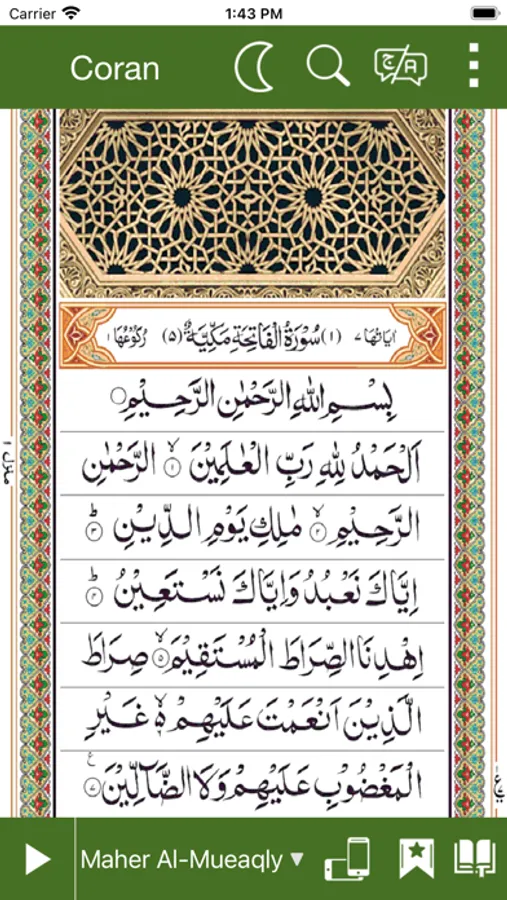 Carrier 1:43 PM
Coran
اٰيَاتُهَا ٧ (١) سُوْرَةُ الْفَاتِحَةِ مَكِّيَّةٌ (٥) رُكُوْعُهَا ١
بِسْمِ اللّٰهِ الرَّحْمٰنِ الرَّحِيْمِ
اَلْحَمْدُ لِلّٰهِ رَبِّ الْعٰلَمِيْنَ ۙ ١ الرَّحْمٰنِ
الرَّحِيْمِ ۙ ٢ مٰلِكِ يَوْمِ الدِّيْنِ ؕ ٣
اِيَّاكَ نَعْبُدُ وَاِيَّاكَ نَسْتَعِيْنُ ؕ ٤
اِهْدِنَا الصِّرَاطَ الْمُسْتَقِيْمَ ۙ ٥ صِرَاطَ
الَّذِيْنَ اَنْعَمْتَ عَلَيْهِمْ ۙ۬ ٦ غَيْرِ
الْمَغْضُوْبِ عَلَيْهِمْ وَلَا الضَّآلِّيْنَ ٧ ع
منزل ١
Maher Al-Mueaqly